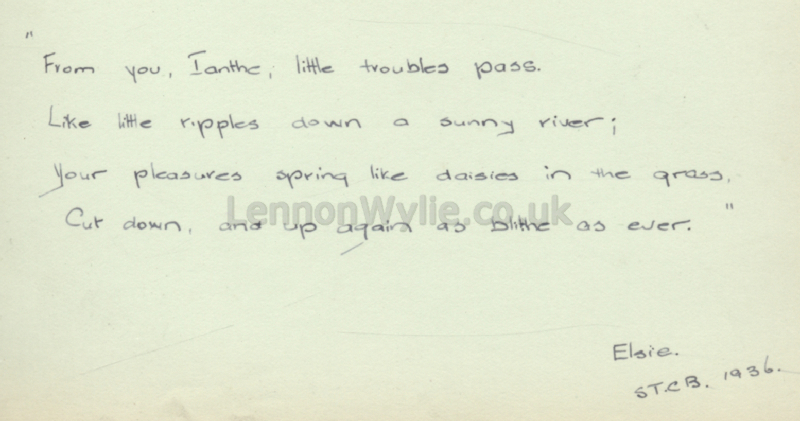 "
From you, Ianthe, little troubles pass.
Like little ripples down a sunny river;
Your pleasures spring like daisies in the grass,
Cut down, and up again as blithe as ever. "
LennonWylie.co.uk
Elsie.
S.T.C.B. 1936.